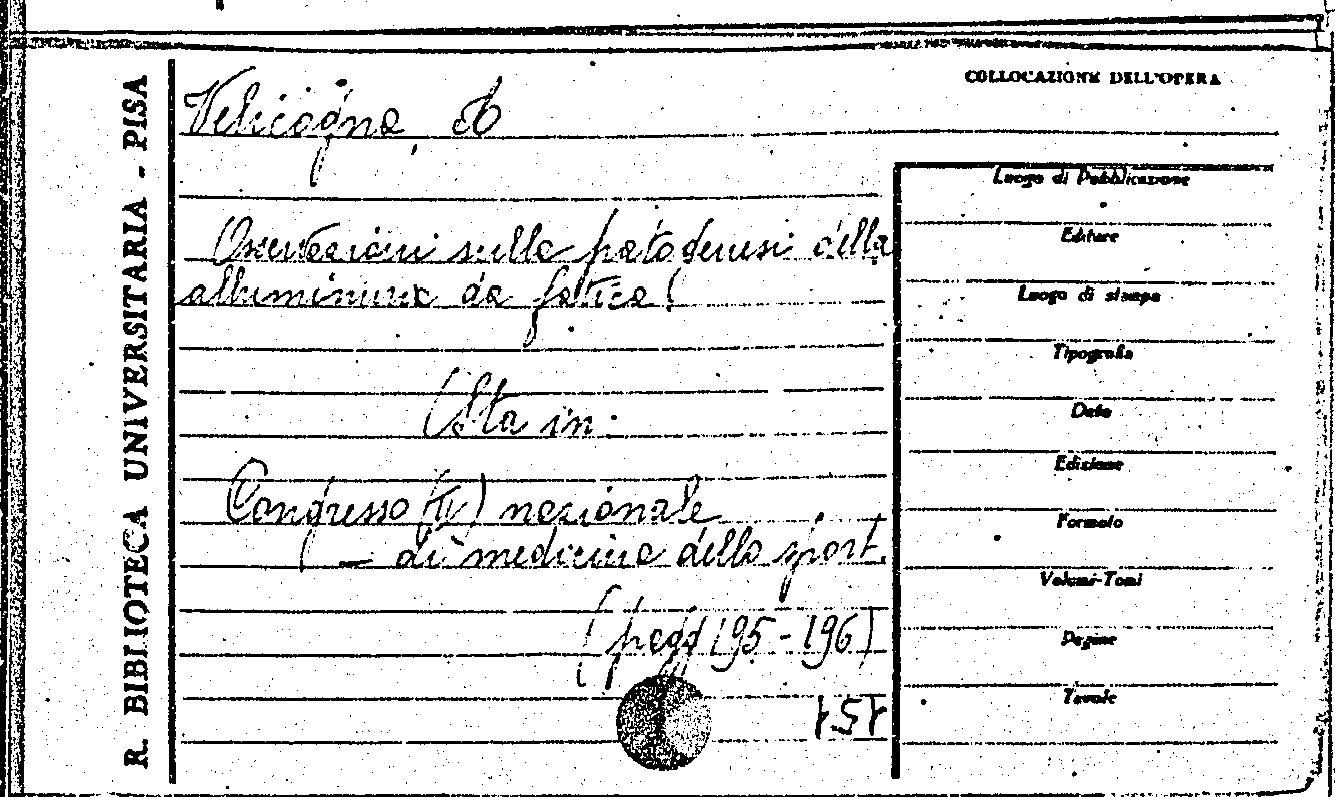 R. BIBLIOTECA UNIVERSITARIA - PISA
COLLOCAZIONE DELL'OPERA
Velicogna, A
Osservazioni sulla patogenesi della
albuminuria da fatica (
(Sta in.
Congresso (IV) nazionale
– di medicina dello sport.
(pagg 195-196)
Luogo di Pubblicazione
Editore
Luogo di stampa
Tipografia
Data
Edizione
Formato
Volumi-Tomi
Pagine
Tavole